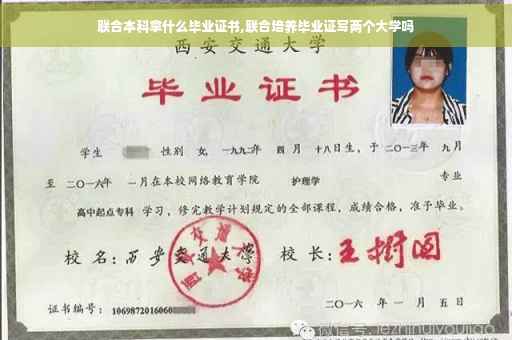 联合本科拿什么毕业证书,联合培养毕业证写两个大学吗
西安交通大学
毕业证书
学生 性别 女, 一九九二年 四月 十八日生, 于 二〇一三年 九月
至 二〇一六年 一月在本校网络教育学院 护理学 专业
高中起点专科 学习, 修完教学计划规定的全部课程, 成绩合格, 准予毕业。
校名: 西安交通大学 校长: 王树国
西安交通大学
证书编号: 1069872016060
二〇一六 年 一 月 五 日
微信号: jezhihuiyoujiao